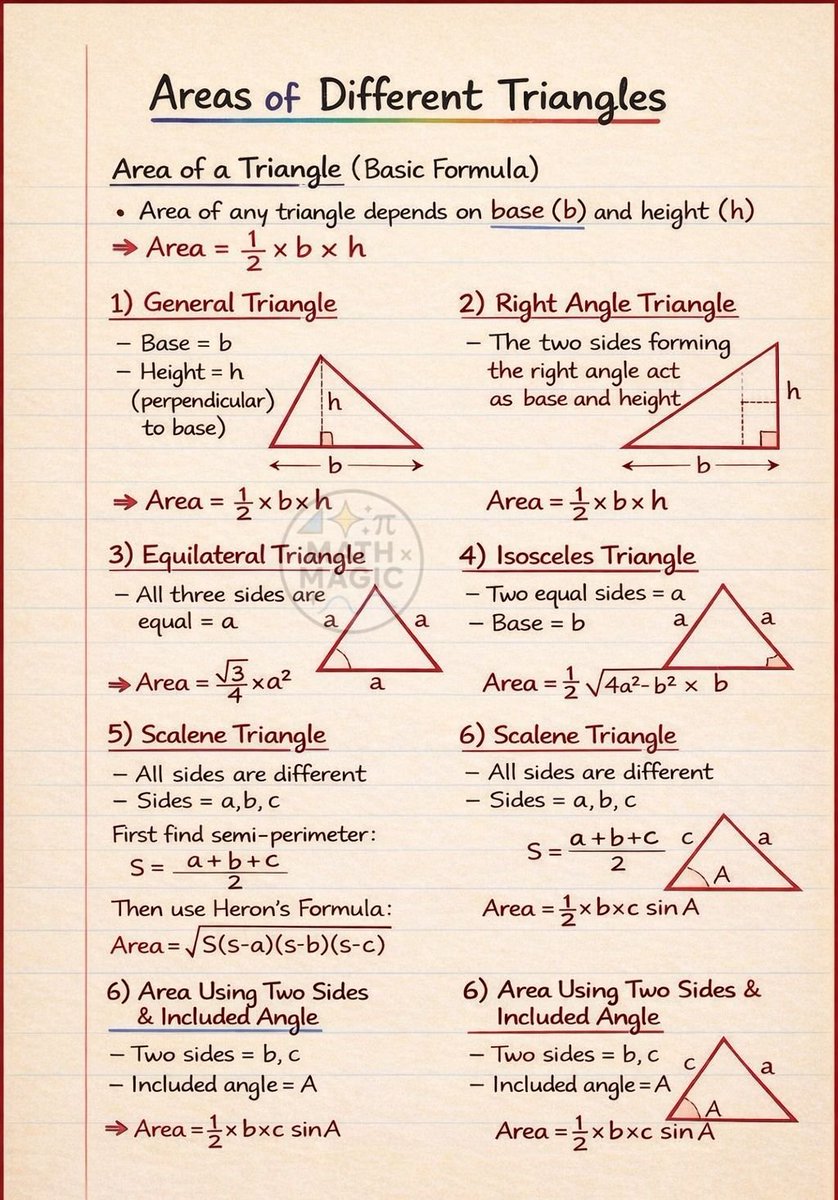 Areas of Different Triangles
Area of a Triangle (Basic Formula)
• Area of any triangle depends on base (b) and height (h)
⇒ Area = 1/2 × b × h
1) General Triangle
– Base = b
– Height = h
(perpendicular)
to base)
h
b
⇒ Area = 1/2 × b × h
2) Right Angle Triangle
– The two sides forming
the right angle act
as base and height
h
b
Area = 1/2 × b × h
MATH ×
MAGIC
π
3) Equilateral Triangle
– All three sides are
equal = a
a
a
a
⇒ Area = √3/4 × a²
4) Isosceles Triangle
– Two equal sides = a
– Base = b
a
a
Area = 1/2 √4a² - b² × b
5) Scalene Triangle
– All sides are different
– Sides = a, b, c
First find semi-perimeter:
S = a + b + c / 2
Then use Heron's Formula:
Area = √S(s-a)(s-b)(s-c)
6) Scalene Triangle
– All sides are different
– Sides = a, b, c
S = a + b + c / 2
c
a
A
Area = 1/2 × b × c sin A
6) Area Using Two Sides
& Included Angle
– Two sides = b, c
– Included angle = A
⇒ Area = 1/2 × b × c sin A
6) Area Using Two Sides &
Included Angle
– Two sides = b, c
– Included angle = A
c
a
A
Area = 1/2 × b × c sin A